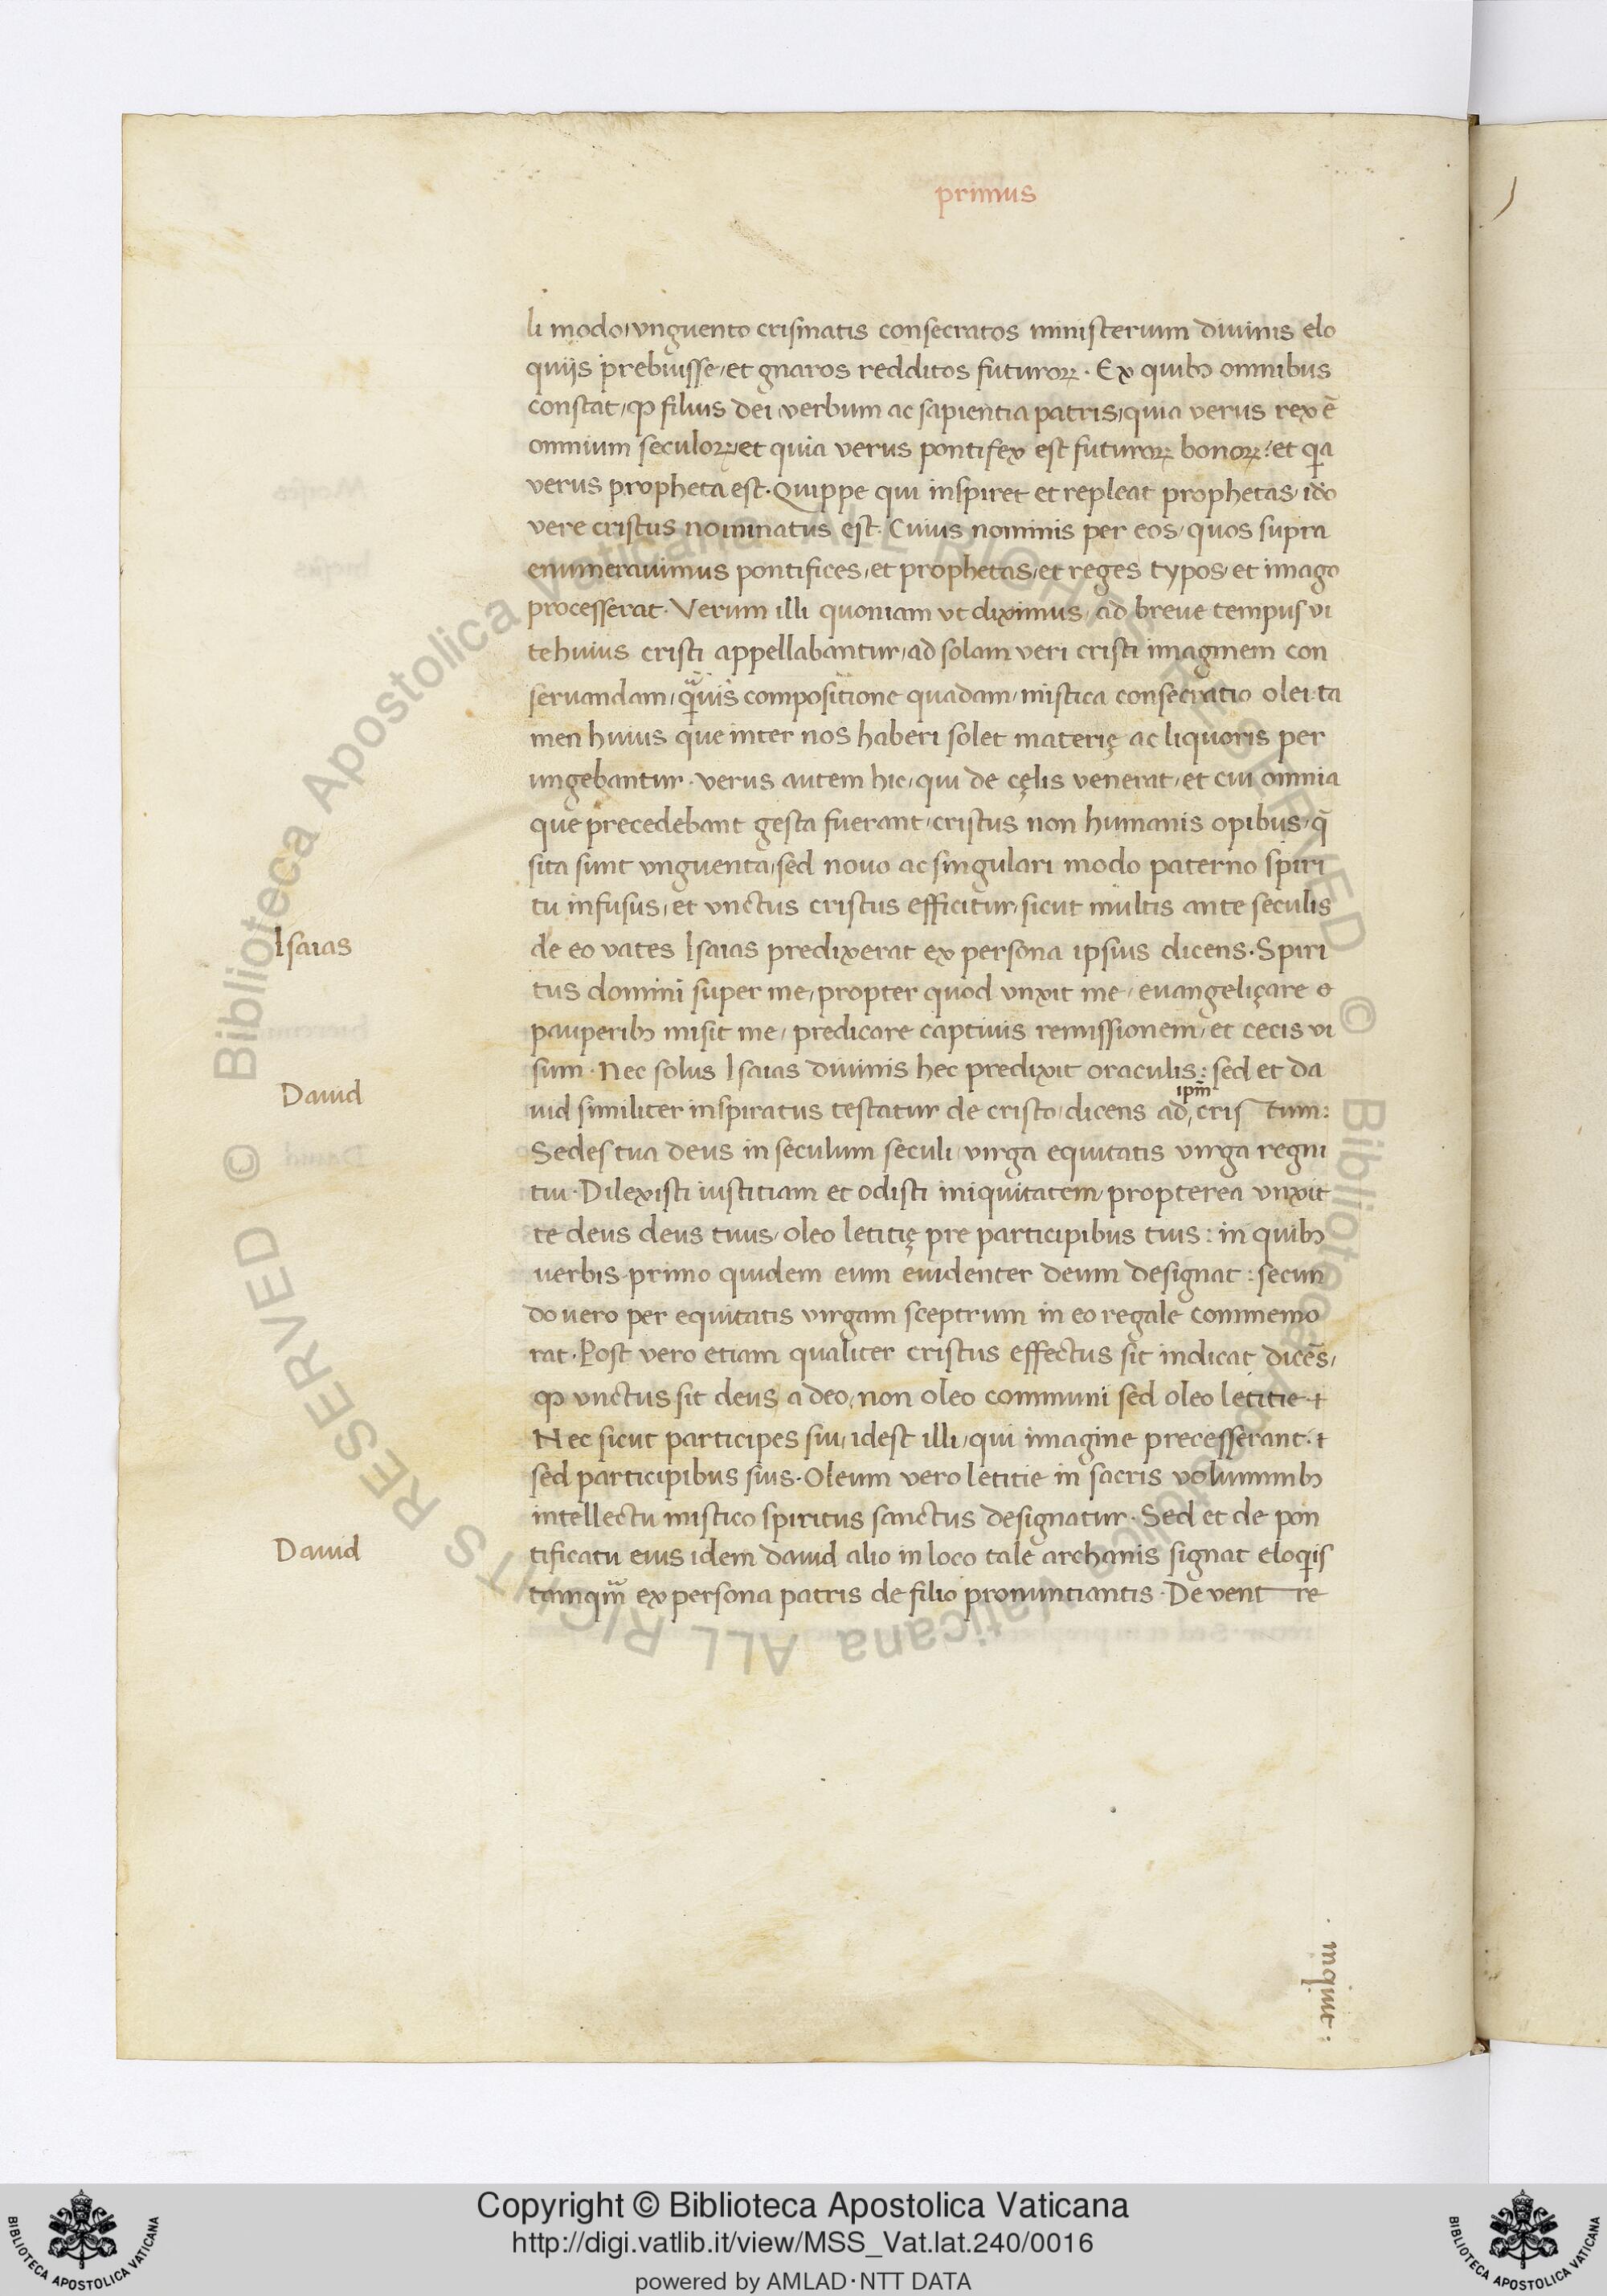 primus
li modo, vnguento crismatis consecratos ministerium diuinis elo
quijs prebuisse, et gnaros redditos futuroꝝ. Ex quibꝫ omnibus
constat, ꝙ filius dei verbum ac sapientia patris, quia verus rex ē
omnium seculoꝝ, et quia verus pontifex est futuroꝝ bonoꝝ: et qia
verus propheta est. Quippe qui inspiret et repleat prophetas, ido
vere cristus nominatus est. Cuius nominis per eos, quos supra
enumerauimus pontifices, et prophetas, et reges typos, et imago
processerat. Verum illi quoniam vt diximus, ad breue tempus vi
te huius cristi appellabantur, ad solam veri cristi imaginem con
seruandam, qͣuis compositione quadam, mistica consecratio olei ta
men huius que inter nos haberi solet materię ac liquoris per
ungebantur. verus autem hic, qui de cęlis venerat, et cui omnia
que precedebant gesta fuerant, cristus non humanis opibus, q̄
sita sunt vnguenta, sed nouo ac singulari modo paterno spiri
tu infusus, et vnctus cristus efficitur, sicut multis ante seculis
Isaias
de eo vates Isaias predixerat ex persona ipsius dicens. Spiri
tus domini super me, propter quod vnxit me, euangeliçare o
pauperibꝫ misit me, predicare captiuis remissionem, et cecis vi
sum. Nec solus Isaias diuinis hec predixit oraculis: sed et da
Dauid
uid similiter inspiratus testatur de cristo, dicens ad ip̄m cris tum:
Sedes tua deus in seculum seculi, virga equitatis virga regni
tui. Dilexisti iustitiam et odisti iniquitatem, propterea vnxit
te deus deus tuus, oleo letitię pre participibus tuis: in quibꝫ
uerbis primo quidem eum euidenter deum designat: secun
do uero per equitatis virgam sceptrum in eo regale commemo
rat. Post vero etiam qualiter cristus effectus sit indicat dicēs,
ꝙ vnctus sit deus a deo, non oleo communi sed oleo letitie. t
Nec sicut participes sui, idest illi, qui imagine precesserant. t
sed participibus suis. Oleum vero letitie in sacris voluminibꝫ
intellectu mistico spiritus sanctus designatur. Sed et de pon
Dauid
tificatu eius idem dauid alio in loco tale archanis signat eloqis
tamqͣm ex persona patris de filio pronuntiantis. De vent re
. inquit :
Copyright © Biblioteca Apostolica Vaticana
http://digi.vatlib.it/view/MSS_Vat.lat.240/0016
powered by AMLAD·NTT DATA
BIBLIOTECA APOSTOLICA VATICANA
BIBLIOTECA APOSTOLICA VATICANA
© Biblioteca Apostolica Vaticana ALL RIGHTS RESERVED © Biblioteca Apostolica Vaticana ALL RIGHTS RESERVED